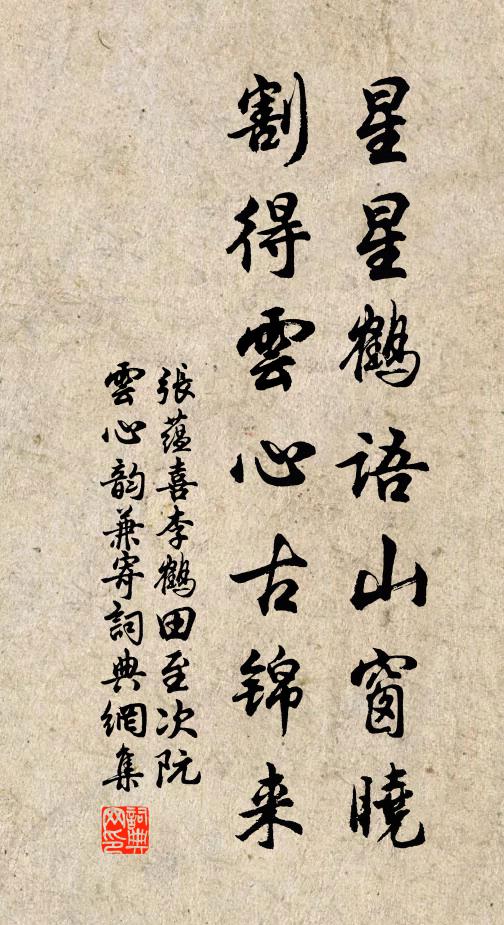 星星鹤語山窗曉
割得雲心古锦来
張蕴喜李鶴田至次阮
雲心韵兼寄詞典網集
詞典网印